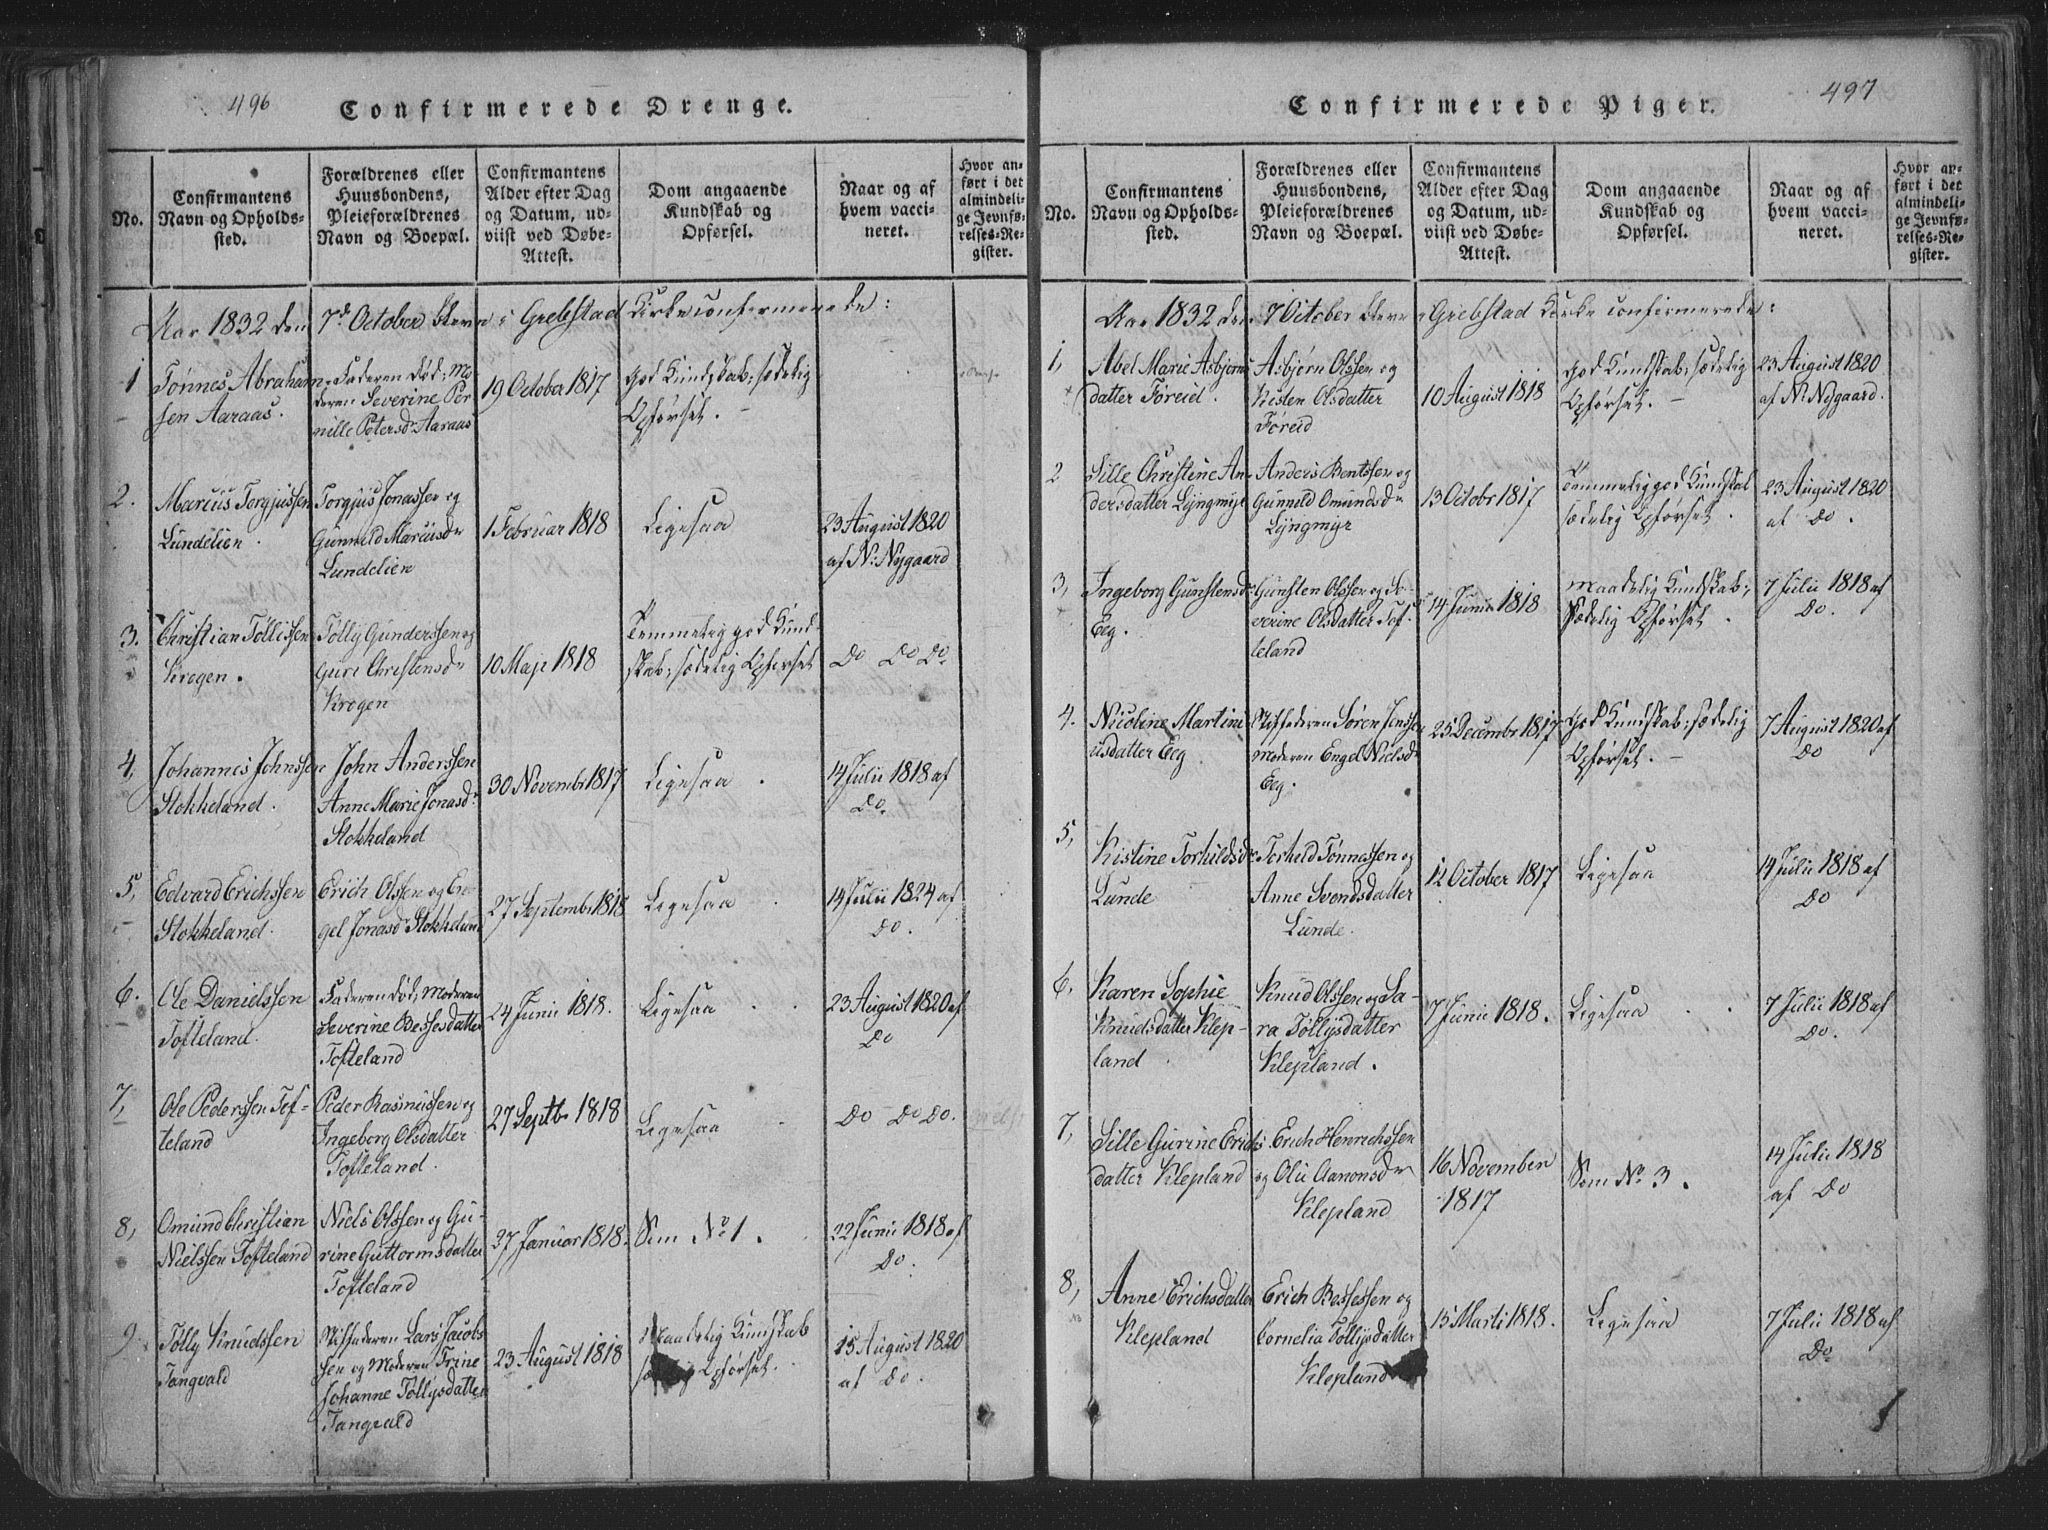 496
Confirmerede Drenge.
No.
Confirmantens
Navn og Opholds-
sted.
Forældrenes eller
Huusbondens,
Pleieforældrenes
Navn og Boepæl.
Confirmantens
Alder efter Dag
og Datum, ud-
viist ved Døbe-
Attest.
Dom angaaende
Kundskab og
Opførsel.
Naar og af
hvem vacci-
neret.
Hvor an-
ført i det
almindeli-
ge Jevnfø-
relses-Re-
gister.
Aar 1832 den 7d October blev i Grebstad Kirke confirmerede:
1
Tønnes Abraham-
sen Aaraas.
Faderen død; Mo-
deren Severine Per-
nille Petersd. Aaraas
19 October 1817
god Kundskab; sædelig
Opførsel. -
2.
Marcus Torgjussen
Lundelien.
Torgjus Jonassen og
Gunnild Marcusdr
Lundelien
1 Februar 1818
Ligesaa
23 August 1820
af N: Nygaard
3.
Christian Tøllissen
Krogen.
Tølly Gunderssen og
Guri Christensdr
Krogen
10 Maji 1818
Temmelig god Kund-
skab; sædelig Opførsel
Do Do Do
4,
Johannes Johnssen
Stokkeland.
John Anderssen
Anne Marie Jonasdr
Stokkeland
30 Novembr 1817
Ligesaa .
14 Julii 1818 af
Do.
5,
Edvard Erichssen
Stokkeland.
Erich Olssen og En-
gel Jonasd Stokkeland
27 Septembr 1818
Ligesaa .
14 Julii 1824 af
Do.
6.
Ole Danielssen
Tofteland.
Faderen død; Moderen
Severine Bessesdatter
Tofteland
24 Junii 1818.
Ligesaa
23 August 1820 af
Do
7,
Ole Pederssen Tof-
teland
Peder Rasmussen og
Ingeborg Olsdatter
Tofteland.
27 Septbr 1818
Ligesaa
Do Do Do.
8,
Omund Christian
Nielssen Tofteland
Niels Olssen og Gu-
rine Guttormsdatter
Tofteland
27 Januar 1818.
Som No 1.
22 Junii 1818 af
Do.
9.
Tølly Knudssen
Tangvald
Stiffaderen Lars Jacobs
sen og Moderen Trine
Johanne Tøllysdatter
Tangvald
23 August 1818
Maadelig Kundskab
Opførsel.
15 August 1820
af Do.
497
Confirmerede Piger.
No.
Confirmantens
Navn og Opholds-
sted.
Forældrenes eller
Huusbondens,
Pleieforældrenes
Navn og Boepæl.
Confirmantens
Alder efter Dag
og Datum, ud-
viist ved Døbe-
Attest.
Dom angaaende
Kundskab og
Opførsel.
Naar og af
hvem vacci-
neret.
Hvor an-
ført i det
almindeli-
ge Jevnfø-
relses-Re-
gister.
Aar 1832 den 7 October blev i Grebstad Kirke confirmerede:
1,
Abel Marie Asbjørns-
datter Føreid.
Asbjørn Olssen og
Kisten Olsdatter
Føreid
10 August 1818
god Kundskab; sædelig
Opførsel. -
23 August 1820
af N: Nygaard.
2
Sille Christine An-
dersdatter Lyngmyr
Anders Bentssen og
Gunnild Omundsdr
Lyngmyr
13 Octobr 1817
Temmelig god Kundskab
sædelig Opførsel.
23 August 1820
af Do.
3,
Ingeborg Gunstensdr
Eeg.
Gunsten Olssen og Se-
verine Olsdatter Tof-
teland
14 Junii 1818
Maadelig Kundskab;
sædelig Opførsel.
7 Julii 1818 af
Do.
4.
Nicoline Martini-
usdatter Eeg
Stiffaderen Søren Jenssen
Moderen Engel Nielsdr
Eeg.
25 Decembr 1817
god Kundskab; sædelig
Opførsel. -
7 August 1820 af
Do
5,
Kistine Torkildsdr
Lunde
Torkeld Tønnessen og
Anne Svendsdatter
Lunde.
12 October 1817
Ligesaa
14 Julii 1818 af
Do
6,
Karen Sophie
Knudsdatter Klep-
land
Knud Olssen og Sa-
ra Tøllysdatter
Klepland.
7 Junii 1818.
Ligesaa
7 Julii 1818 af
Do.
7,
Sille Gurine Erichs
datter Klepland
Erich Henrichssen
og Olii Aanonsdr
Klepland
16 November
1817
Som No 3.
14 Julii 1818
af Do
8,
Anne Erichsdatter
Klepland
Erich Bessessen og
Cornelia Tøllysdatter
Klepland
15 Marti 1818.
Ligesaa
7 Julii 1818 af
Do